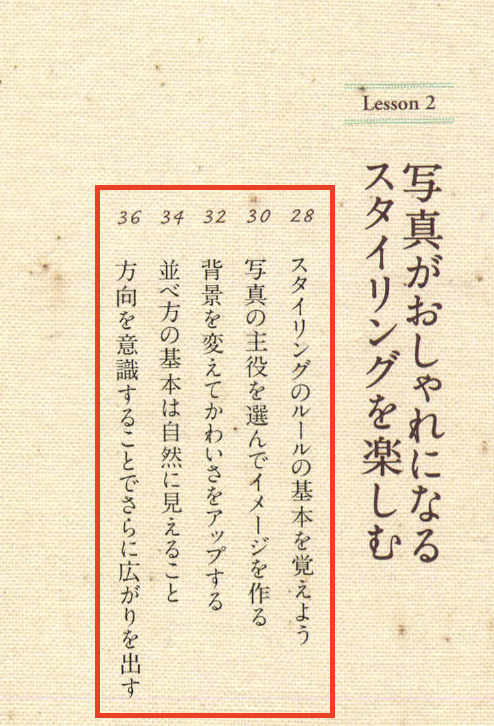 Lesson 2
写真がおしゃれになる
スタイリングを楽しむ
28 スタイリングのルールの基本を覚えよう
30 写真の主役を選んでイメージを作る
32 背景を変えてかわいさをアップする
34 並べ方の基本は自然に見えること
36 方向を意識することでさらに広がりを出す